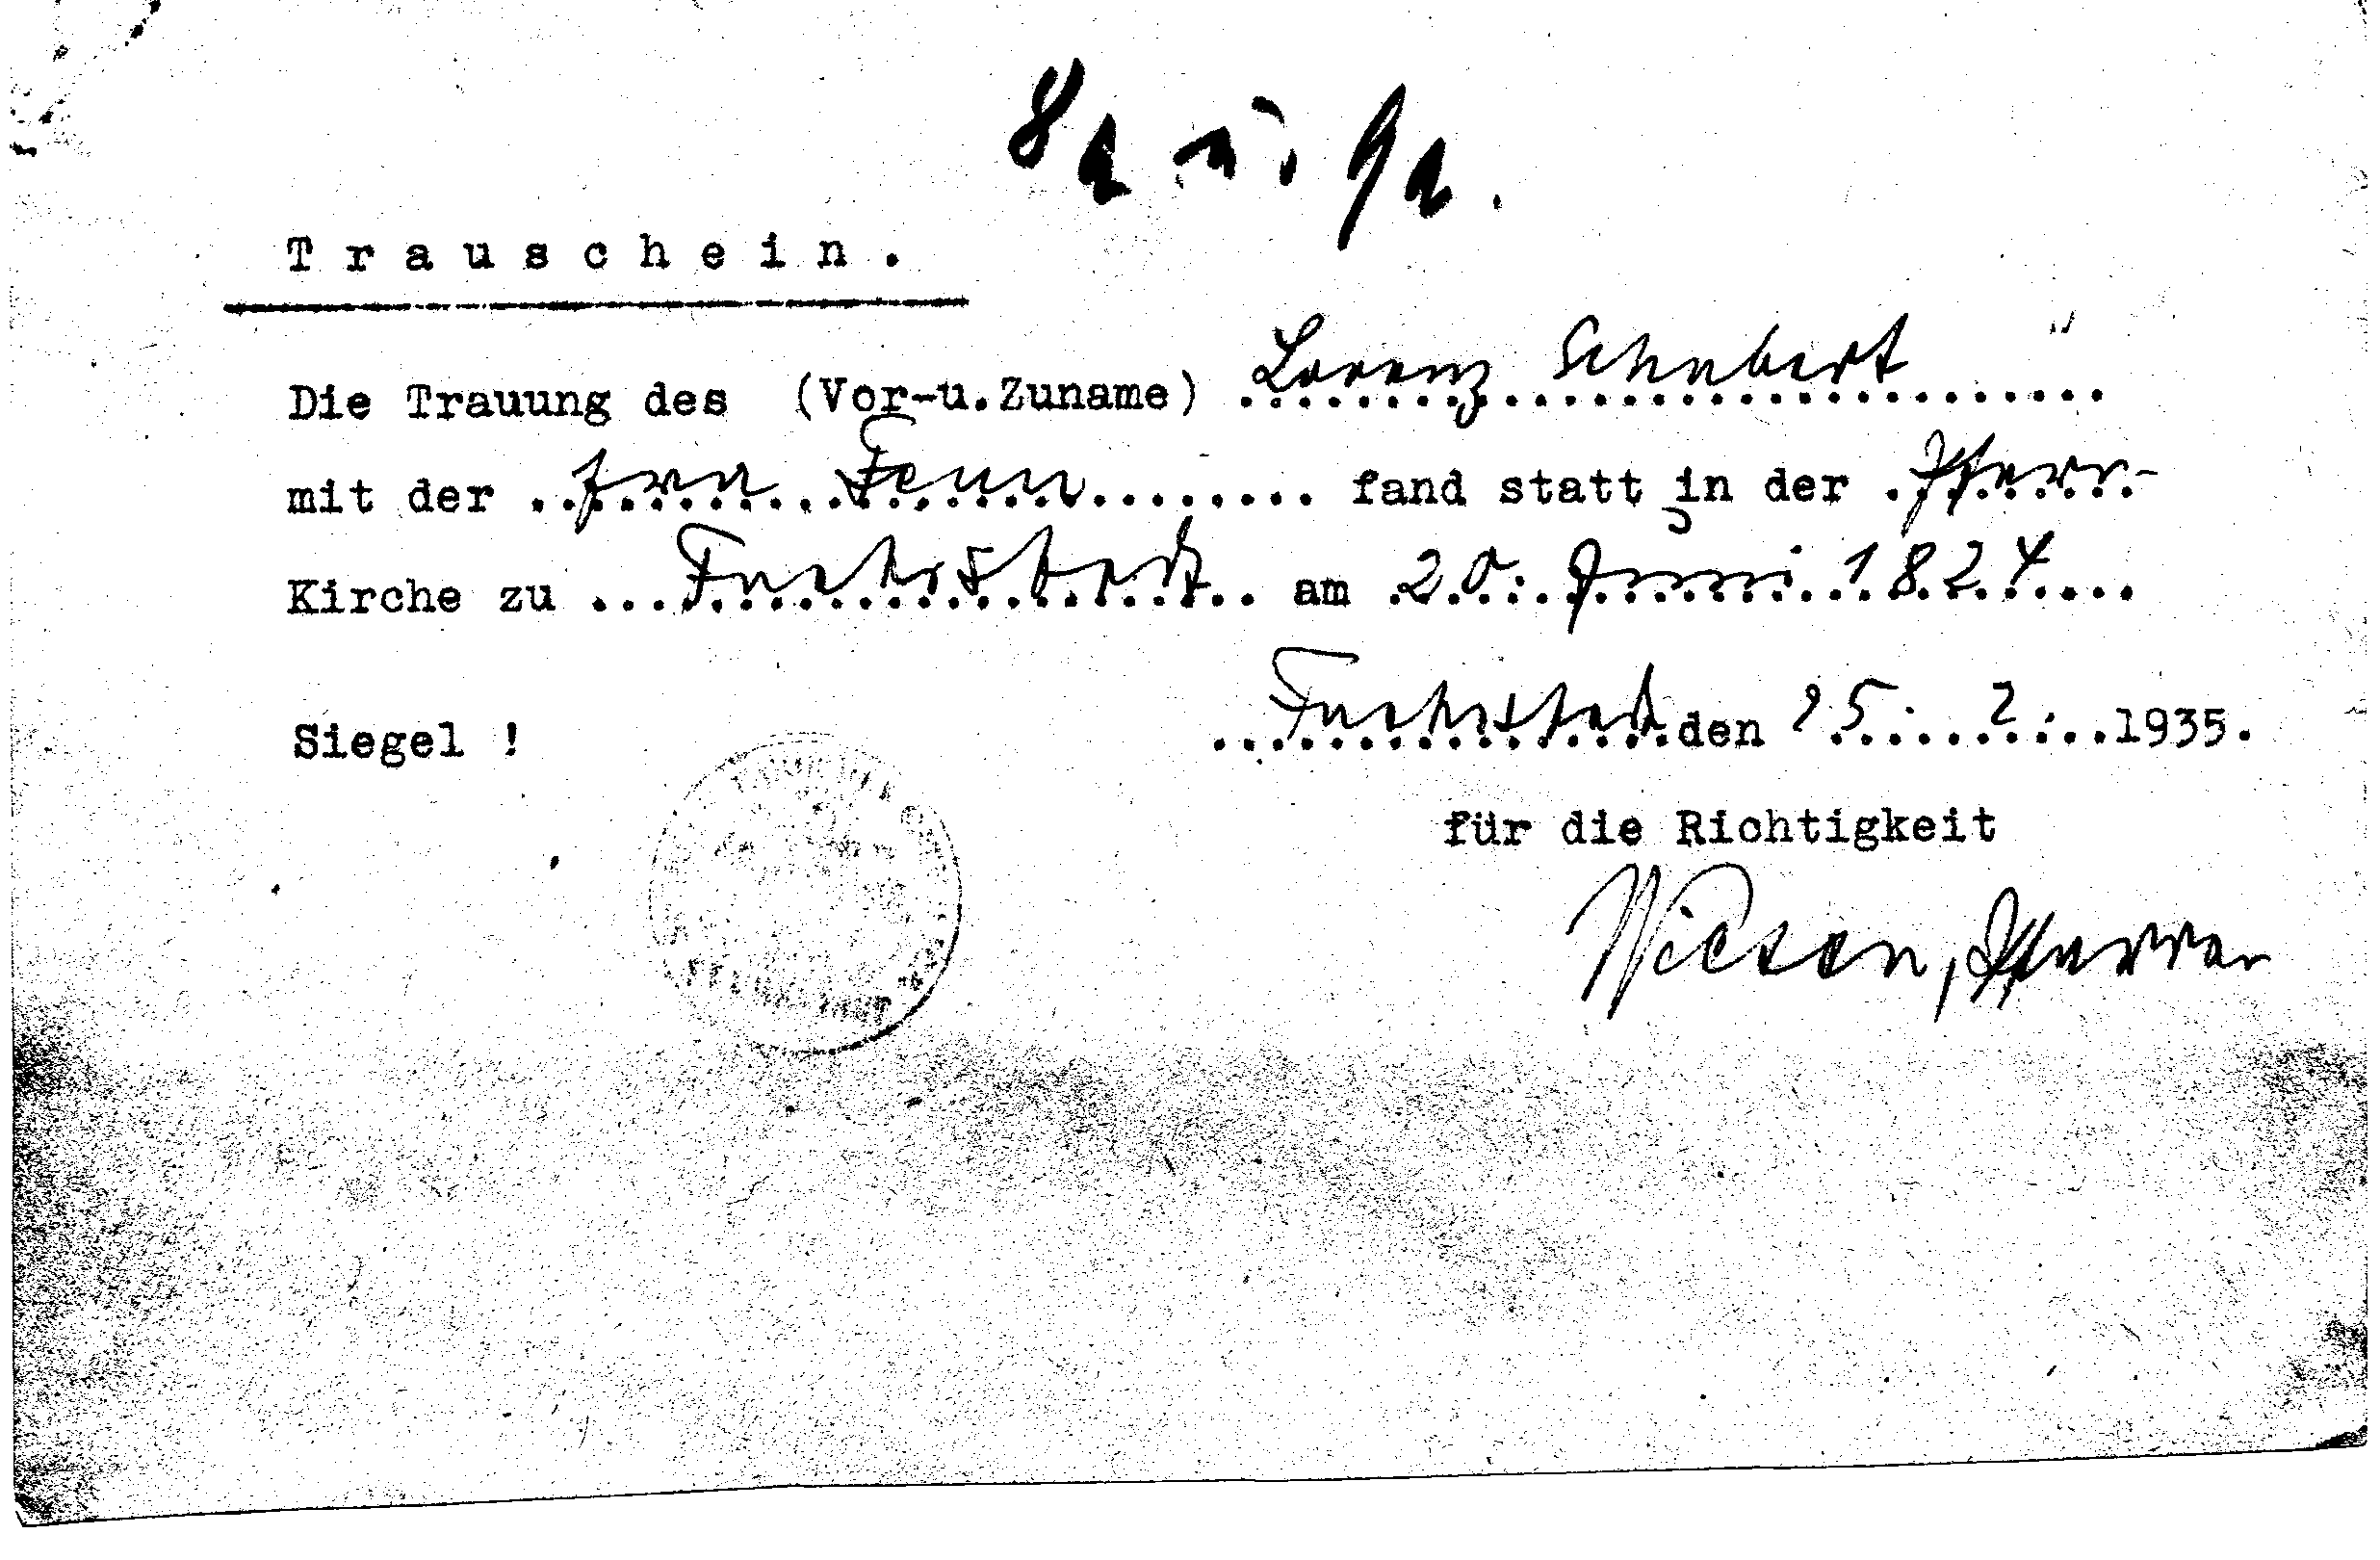 8a u. 9a.
Trauschein.
Die Trauung des (Vor-u.Zuname) Lorenz Schubert
mit der Eva Fenn fand statt in der Pfarr-
Kirche zu Fuchsstadt am 20. Juni 1824
Siegel ! Fuchsstadt den 25. 2. 1935.
für die Richtigkeit
Pfarrer